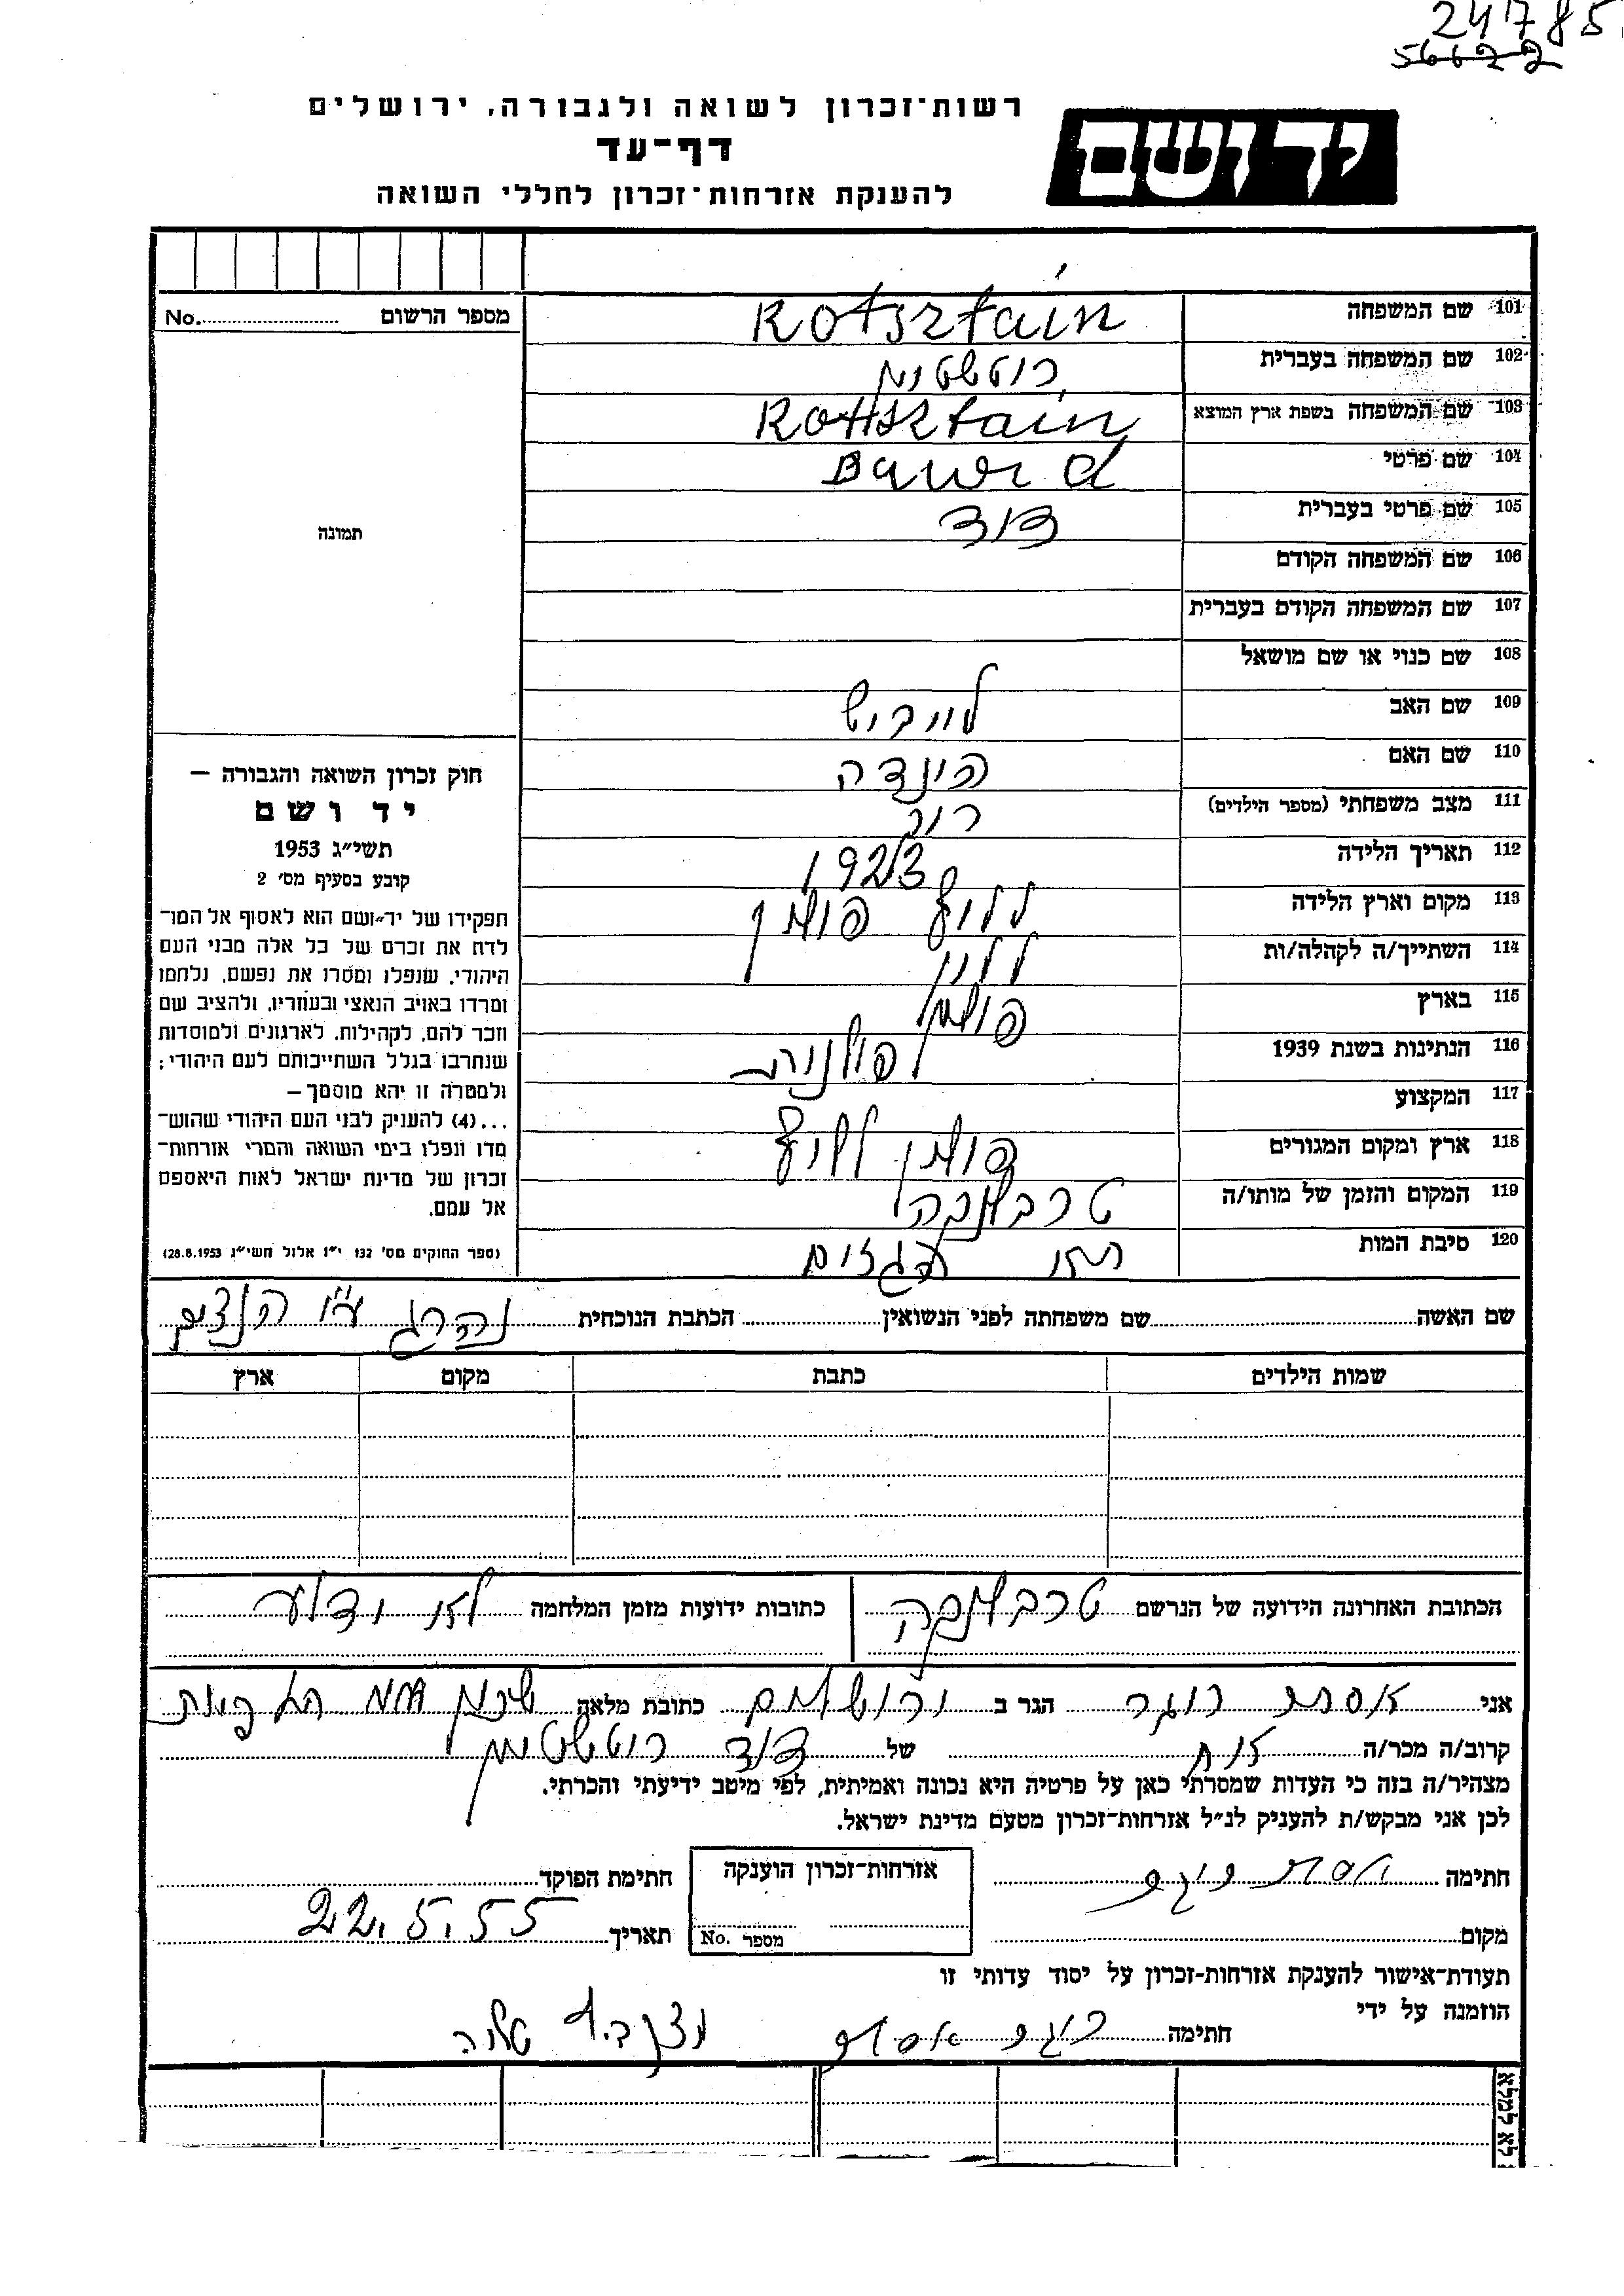 24785
56622
רשות־זכרון לשואה ולגבורה, ירושלים
דף־עד
להענקת אזרחות־זכרון לחללי השואה
יד ושם
מספר הרשום No.
תמונה
101 שם המשפחה Rotsztain
102 שם המשפחה בעברית רוטשטיין
103 שם המשפחה בשפת ארץ המוצא Rottsztain
104 שם פרטי Dawid
105 שם פרטי בעברית דוד
106 שם המשפחה הקודם
107 שם המשפחה הקודם בעברית
108 שם כנוי או שם מושאל
109 שם האב לייביש
110 שם האם הינדה
111 מצב משפחתי (מספר הילדים)
112 תאריך הלידה 1923
113 מקום וארץ הלידה לודז פולין
114 השתייך/ה לקהלה/ות
115 בארץ פולין
116 הנתינות בשנת 1939 פולנית
117 המקצוע
118 ארץ ומקום המגורים פולין לודז
119 המקום והזמן של מותו/ה טרבלינקה
120 סיבת המות תאי הגזים
חוק זכרון השואה והגבורה —
יד ושם
תשי״ג 1953
קובע בסעיף מס׳ 2
תפקידו של יד־ושם הוא לאסוף אל המו־
לדת את זכרם של כל אלה מבני העם
היהודי, שנפלו ומסרו את נפשם, נלחמו
ומרדו באויב הנאצי ובעוזריו, ולהציב שם
וזכר להם, לקהילות, לארגונים ולמוסדות
שנחרבו בגלל השתייכותם לעם היהודי;
ולמטרה זו יהא מוסמך—
...(4) להעניק לבני העם היהודי שהוש־
מדו ונפלו בימי השואה והמרי אזרחות־
זכרון של מדינת ישראל לאות היאספם
אל עמם.
(ספר החוקים מס׳ 132 י״ז אלול תשי״ג 28.8.1953)
שם האשה שם משפחתה לפני הנשואין הכתבת הנוכחית נהרג ע״י הנצים
שמות הילדים כתבת מקום ארץ
הכתובת האחרונה הידועה של הנרשם טרבלינקה
כתובות ידועות מזמן המלחמה לא ידוע
אני אסתר הגר ב ירושלים כתובת מלאה שיכון
קרוב/ה מכר/ה אחות של דוד רוטשטיין
מצהיר/ה בזה כי העדות שמסרתי כאן על פרטיה היא נכונה ואמיתית, לפי מיטב ידיעתי והכרתי.
לכן אני מבקש/ת להעניק לנ״ל אזרחות־זכרון מטעם מדינת ישראל.
חתימה אסתר
אזרחות־זכרון הוענקה
מספר No.
חתימת הפוקד
מקום
תאריך 22.5.55
תעודת־אישור להענקת אזרחות־זכרון על יסוד עדותי זו
הוזמנה על ידי
חתימה אסתר
לא למלא